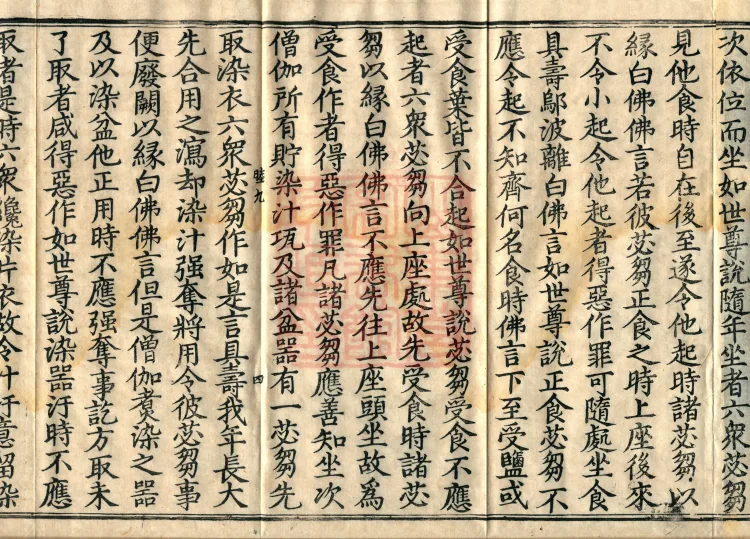 次依位而坐如世尊說隨年坐者六衆苾芻
見他食時自在後至遂令他起時諸苾芻以
緣白佛佛言若彼苾芻正食之時上座後來
不令小起令他起者得惡作罪可隨處坐食
具壽鄔波離白佛言如世尊說正食苾芻不
應令起不知齊何名食時佛言下至受鹽或
受食葉皆不合起如世尊說苾芻受食不應
起者六衆苾芻向上座處故先受食時諸苾
芻以緣白佛佛言不應先往上座頭坐故爲
受食作者得惡作罪凡諸苾芻應善知坐次
僧伽所有貯染汁瓨及諸盆器有一苾芻先
取染衣六衆苾芻作如是言具壽我年長大
先合用之瀉却染汁强奪將用令彼苾芻事
便廢闕以緣白佛佛言但是僧伽煑染之器
及以染盆他正用時不應强奪事訖方取未
了取者咸得惡作如世尊說染器汙時不應
取者是時六衆纔染片衣故令汁汙意留染
九
四